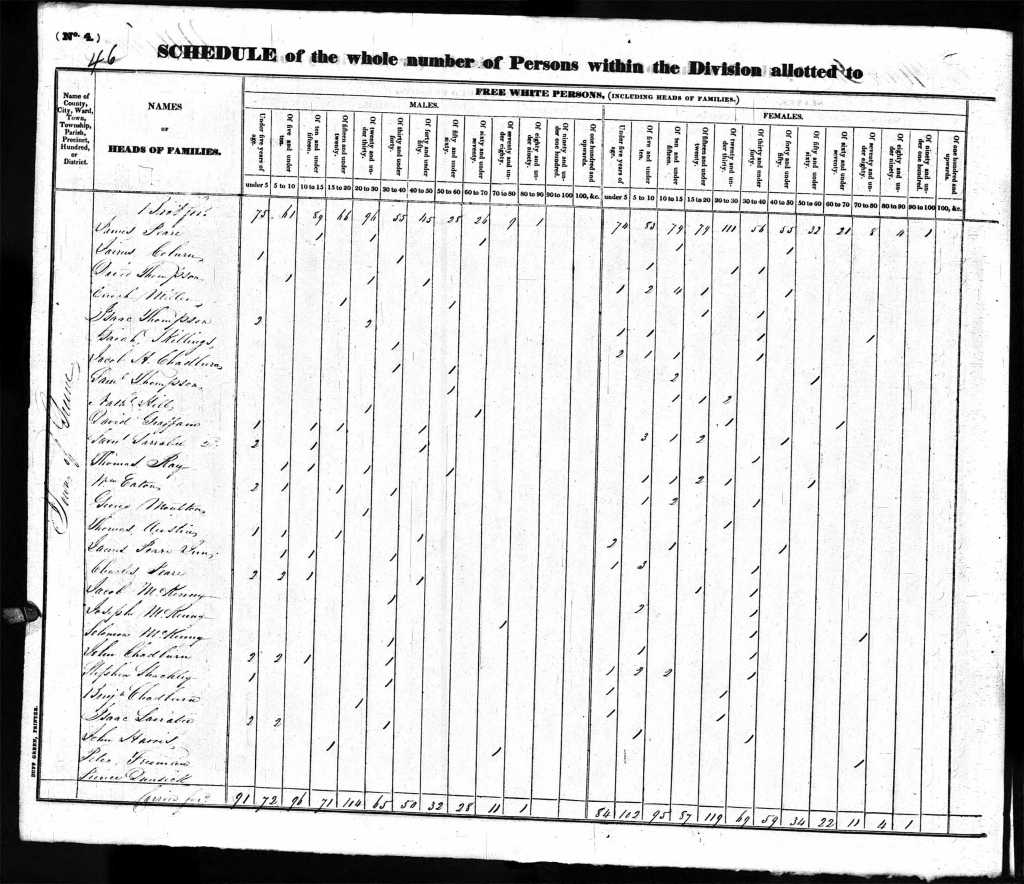 (No. 4.)
46
SCHEDULE of the whole number of Persons within the Division allotted to
Name of County, City, Ward, Town, Township, Parish, Precinct, Hundred, or District.
NAMES
OF
HEADS OF FAMILIES.
FREE WHITE PERSONS, (INCLUDING HEADS OF FAMILIES.)
MALES. FEMALES.
Under five years of age. Of five and under ten. Of ten and under fifteen. Of fifteen and under twenty. Of twenty and under thirty. Of thirty and under forty. Of forty and under fifty. Of fifty and under sixty. Of sixty and under seventy. Of seventy and under eighty. Of eighty and under ninety. Of ninety and under one hundred. Of one hundred and upwards. Under five years of age. Of five and under ten. Of ten and under fifteen. Of fifteen and under twenty. Of twenty and under thirty. Of thirty and under forty. Of forty and under fifty. Of fifty and under sixty. Of sixty and under seventy. Of seventy and under eighty. Of eighty and under ninety. Of ninety and under one hundred. Of one hundred and upwards.
under 5 5 to 10 10 to 15 15 to 20 20 to 30 30 to 40 40 to 50 50 to 60 60 to 70 70 to 80 80 to 90 90 to 100 100, &c. under 5 5 to 10 10 to 15 15 to 20 20 to 30 30 to 40 40 to 50 50 to 60 60 to 70 70 to 80 80 to 90 90 to 100 100, &c.
75 61 89 66 96 55 45 28 26 9 1 74 83 79 79 111 56 55 32 21 8 4 1
James 1 1 1 1 1
1 1 1 1 1
David Thompson 1 1 1 1 2 4 1 1
Enoch 1 1 1 1
Isaac Thompson 2 2 1 1 1 1
1 2 1 1 1
Jacob H. Chadburn 1 1
Saml Thompson 1 2 1
Nathl Hill 1 1 1 1 2
David 1 1 1 1 1 1
Saml 2 1 1 3 1 2 1
Thomas Ray 1 1 1 1 1
Wm Eaton 2 1 1 1 1 1 2 1 1
George Moulton 1 1 2 1
Thomas Austin 1 1 1 1 1
1 1 1 2 1 1
Charles 2 2 1 1 1 3 1
Jacob McKenny 1 1 1
Joseph McKenny 2 1
Solomon McKenny 1 1 1 1
John Chadburn 2 2 1 1 1 1
Stephen 1 1 1 2 2 1
Benja Chadburn 1 1 1
Isaac 2 2 1 1 1
John Harris 1 1 1
Freeman 1 1
91 72 96 71 104 65 50 32 28 11 1 84 102 95 87 119 69 59 34 22 11 4 1
Town of
DUFF GREEN, PRINTER.